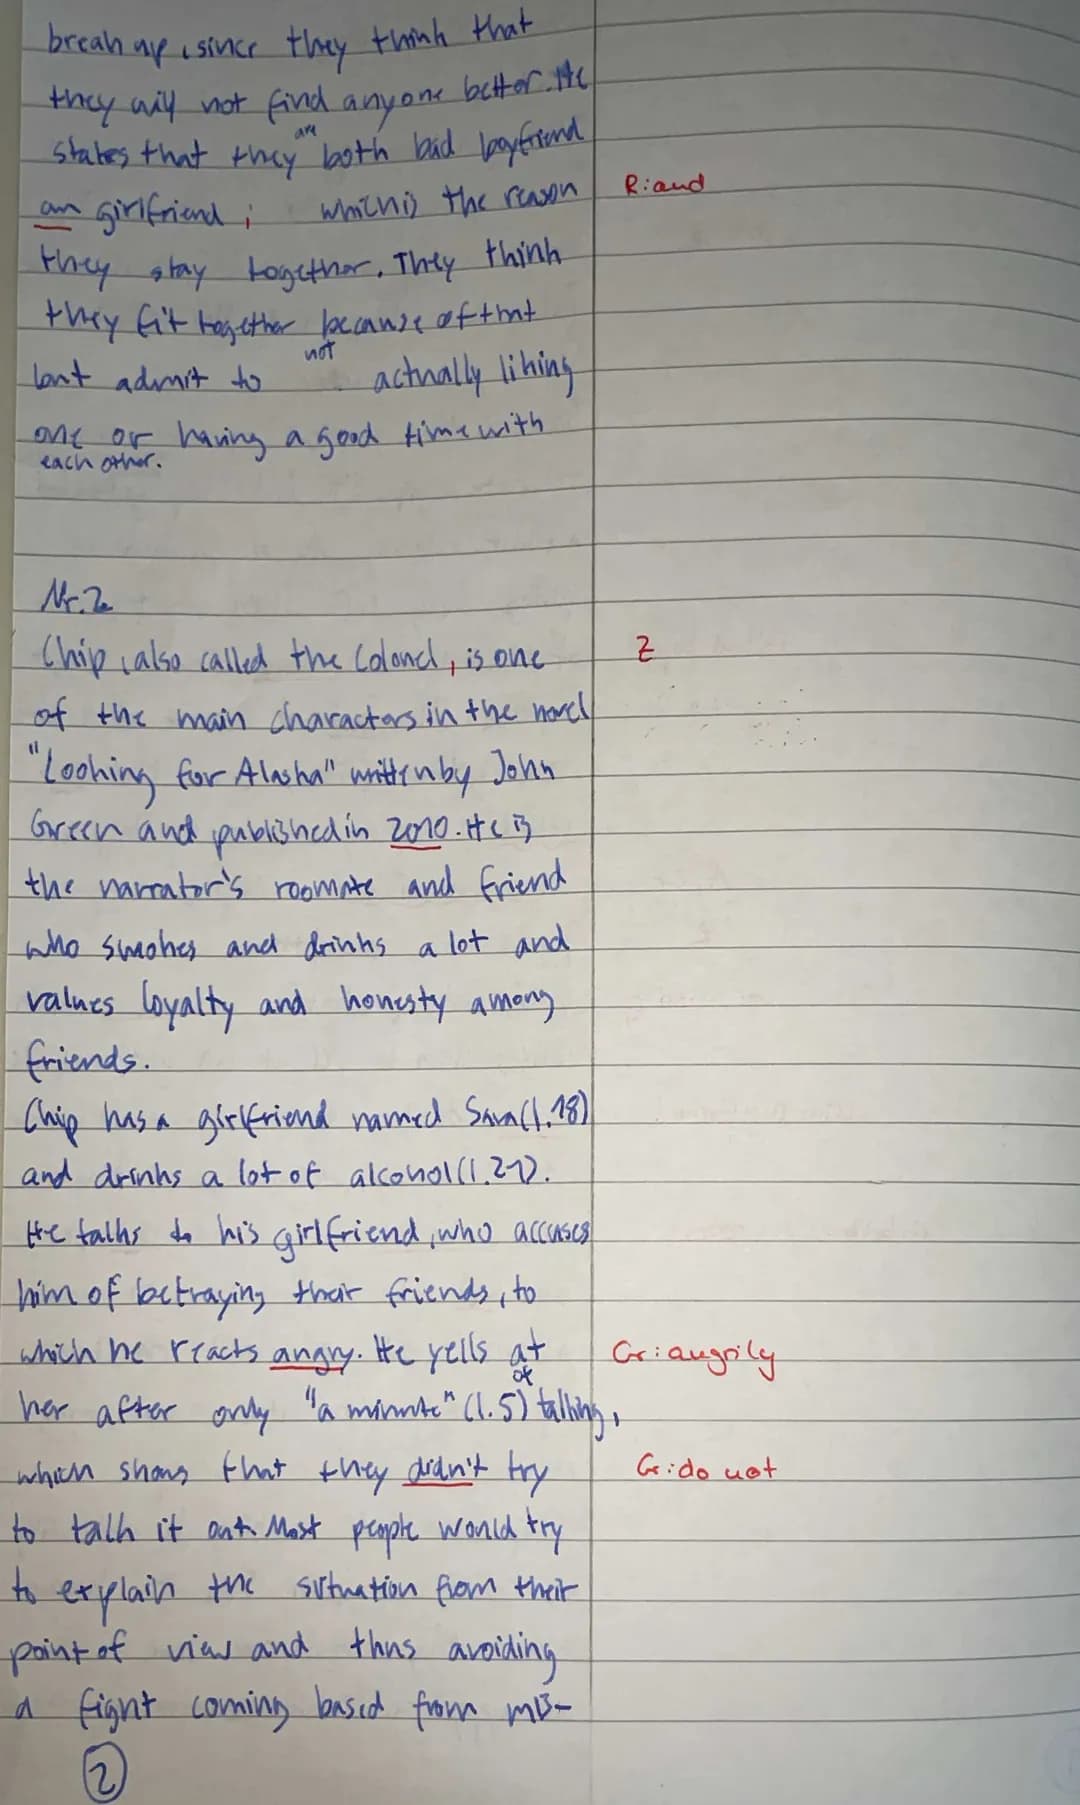 break up, since they think that
they will not find anyone better. He
states that they are both bad boyfriend
an girlfriend; which is the reason
R: and
they stay together. They think
they fit together because of that
but admit to not actually liking
one or having a good time with
each other.
Nr. 2
Chip, also called the Colonel, is one
Z
of the main characters in the novel
"Looking for Alaska" written by John
Green and published in 2010. He is
the narrator's roomate and friend
who smokes and drinks a lot and
values loyalty and honesty among
friends.
Chip has a girlfriend named Sara (l. 18)
and drinks a lot of alcohol (l. 21).
He talks to his girlfriend, who accuses
him of betraying their friends, to
which he reacts angry. He yells at
Gr: angrily
her after only "a minute" (l. 5) of talking,
which shows that they didn't try
Gr: do not
to talk it out. Most people would try
to explain the situation from their
point of view and thus avoiding
a fight coming based from mis-
2